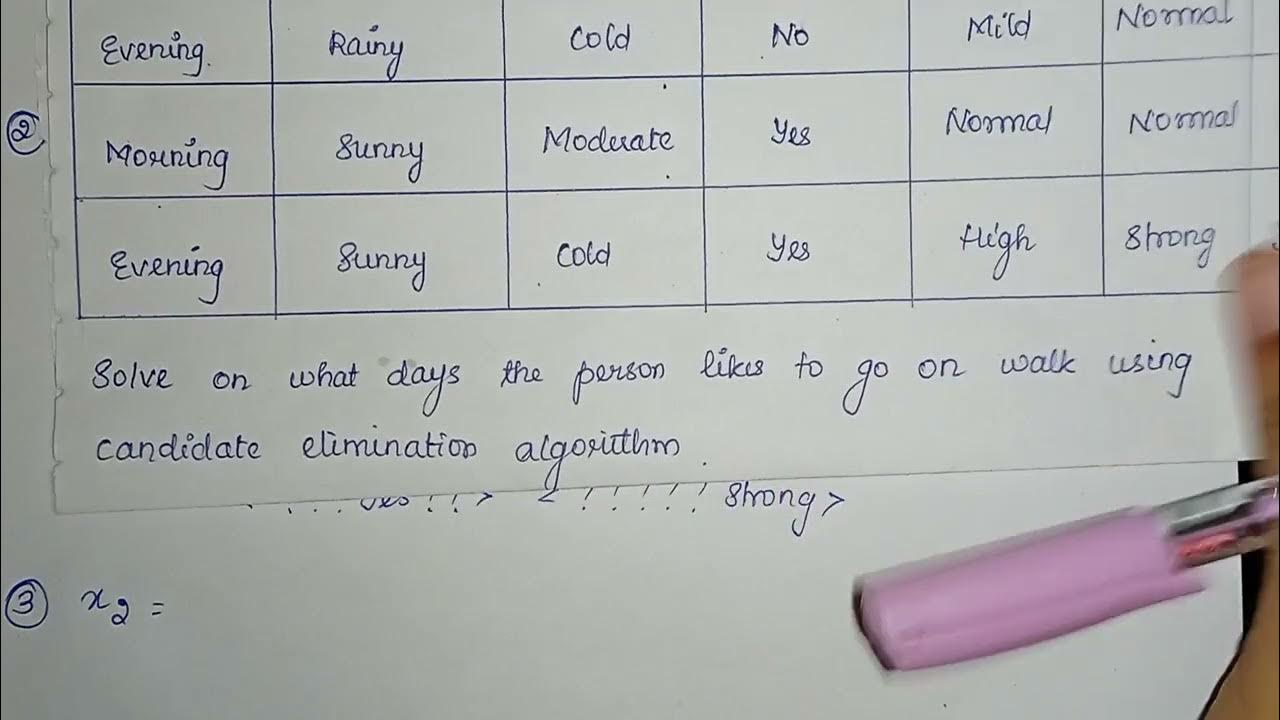 Evening. Rainy Cold No Mild Normal
② Morning Sunny Moderate Yes Normal Normal
Evening Sunny Cold Yes High Strong
Solve on what days the person likes to go on walk using
candidate elimination algorithm.
! ! > < ! ! ! ! ! Strong >
③ x₂ =